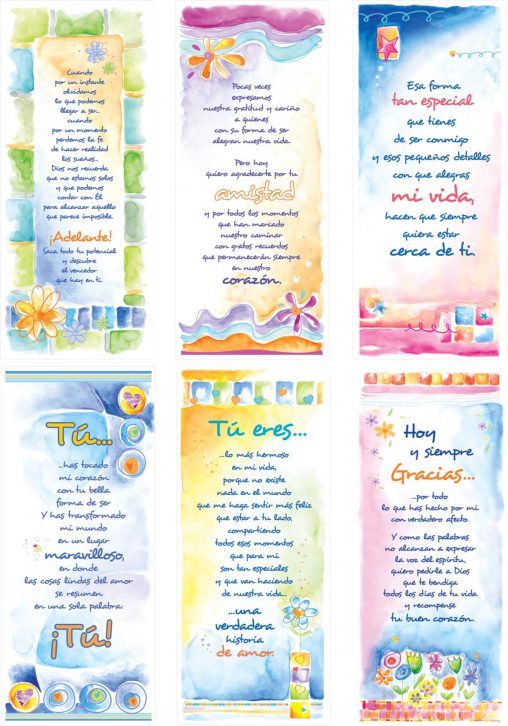 Cuando
por un instante
olvidamos
lo que podemos
llegar a ser...
cuando
por un momento
perdemos la fe
de hacer realidad
los sueños...
Dios nos recuerda
que no estamos solos
y que podemos
contar con Él
para alcanzar aquello
que parece imposible.
¡Adelante!
Saca todo tu potencial
y descubre
el vencedor
que hay en ti.
Pocas veces
expresamos
nuestra gratitud y cariño
a quienes
con su forma de ser
alegran nuestra vida.
Pero hoy
quiero agradecerte por tu
amistad
y por todos los momentos
que han marcado
nuestro caminar
con gratos recuerdos
que permanecerán siempre
en nuestro
corazón.
Esa forma
tan especial
que tienes
de ser conmigo
y esos pequeños detalles
con que alegras
mi vida,
hacen que siempre
quiera estar
cerca de ti.
Tú...
...has tocado
mi corazón
con tu bella
forma de ser
Y has transformado
mi mundo
en un lugar
maravilloso,
en donde
las cosas lindas del amor
se resumen
en una sola palabra:
¡Tú!
Tú eres...
...lo más hermoso
en mi vida,
porque no existe
nada en el mundo
que me haga sentir más feliz
que estar a tu lado,
compartiendo
todos esos momentos
que para mi
son tan especiales
y que van haciendo
de nuestra vida...
...una
verdadera
historia
de amor.
Hoy
y siempre
Gracias...
...por todo
lo que has hecho por mí
con verdadero afecto.
Y como las palabras
no alcanzan a expresar
la voz del espíritu,
quiero pedirle a Dios
que te bendiga
todos los días de tu vida
y recompense
tu buen corazón.